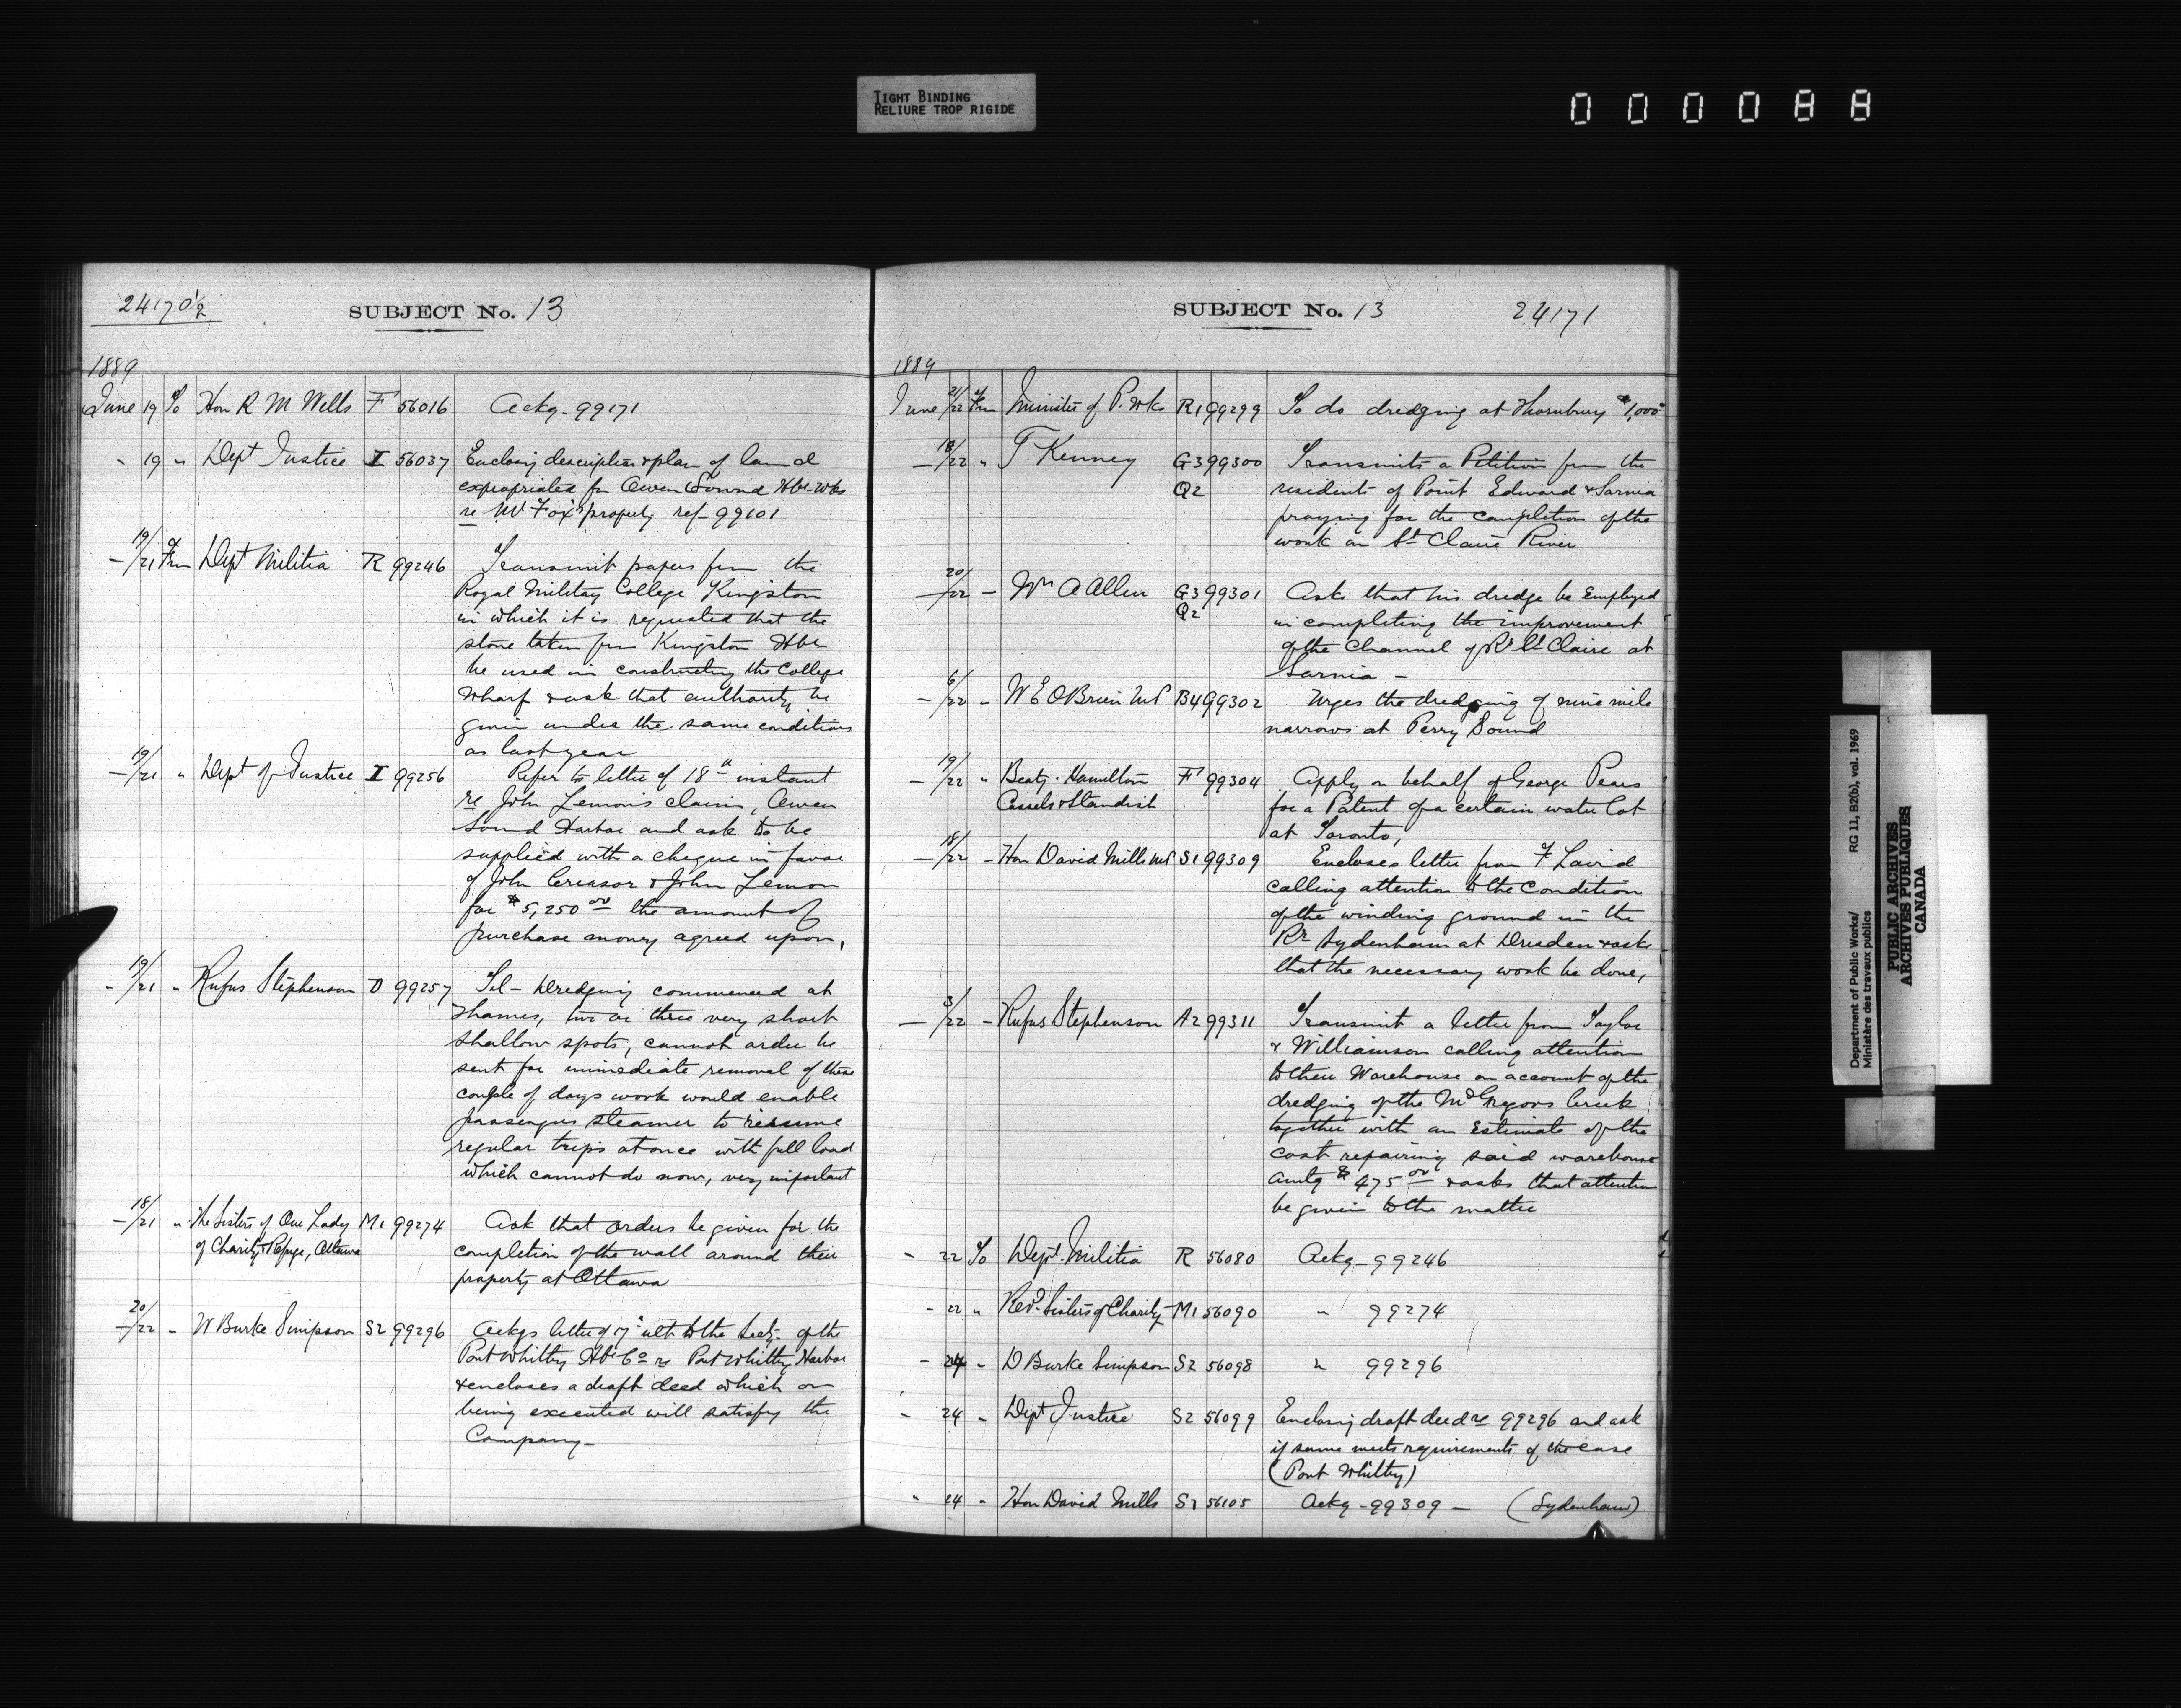 TIGHT BINDING
RELIURE TROP RIGIDE
000088
24170½
SUBJECT No. 13
1889
June 19 To Hon R M Wells F 56016 Ackg - 99171
" 19 " Dept Justice I 56037 Enclosing description & plan of land
expropriated for Owen Sound Hbr Wks
re Fox property ref - 99101
— 19/21 Frm Dept Militia R 99246 Transmit papers from the
Royal Military College Kingston
in which it is requested that the
stone taken from Kingston Hbr
be used in constructing the College
Wharf & ask that authority be
given under the same conditions
as last year
— 19/21 " Dept of Justice I 99256 Refer to letter of 18th instant
re John Lemon's claim, Owen
Sound Harbor and ask to be
supplied with a cheque in favor
of John Creasor & John Lemon
for $5,250.00 the amount of
purchase money agreed upon,
- 19/21 " Rufus Stephenson D 99257 Tel - Dredging commenced at
Thames, two or three very short
shallow spots, cannot order be
sent for immediate removal of these
couple of days work would enable
passengers steamer to resume
regular trips at once with full load
which cannot do now, very important
— 18/21 " The Sisters of Our Lady M1 99274 Ask that orders be given for the
of Charity & Refuge, Ottawa completion of the wall around their
property at Ottawa
— 20/22 - W Burke Simpson S2 99296 Ackgs letter of 17th ult to the Secty. of the
Port Whitby Hbr Co re Port Whitby Harbor
& encloses a draft deed which on
being executed will satisfy the
Company -
SUBJECT No. 13
24171
1889
June 21/22 Frm Minister of P. Wks R1 99299 To do dredging at Thornbury $1,000
— 18/22 " T Kenney G3 99300 Transmits a Petition from the
Q2 residents of Point Edward & Sarnia
praying for the completion of the
work on St Claire River
— 20/22 - Wm A Allen G3 99301 Asks that his dredge be Employed
Q2 in completing the improvement
of the Channel of Rr St Claire at
Sarnia -
- 6/22 - W E OBrien MP B4 99302 Urges the dredging of nine mile
narrows at Perry Sound
— 19/22 " Beaty. Hamilton F 99304 Apply on behalf of George Pears
Cassels & Standish for a Patent of a certain water lot
at Toronto,
— 18/22 - Hon David Mills MP S1 99309 Encloses letter from Laird
calling attention to the Condition
of the winding ground in the
Rr Sydenham at Dresden & asks
that the necessary work be done,
— 3/22 - Rufus Stephenson A2 99311 Transmit a letter from Taylor
& Williamson calling attention
to their Warehouse on account of the
dredging of the McGregors Creek
together with an Estimate of the
cost repairing said warehouse
amtg $475.00 & asks that attention
be given to the matter
" 22 To Dept. Militia R 56080 Ackg - 99246
- 22 " Revd. Sisters of Charity M1 56090 " 99274
- 24 " D Burke Simpson S2 56098 " 99296
- 24 - Dept Justice S2 56099 Enclosing draft deed re 99296 and ask
if same meets requirements of the case
(Port Whitby)
" 24 " Hon David Mills S1 56105 Ackg - 99309 - (Sydenham)
Department of Public Works/ RG 11, B2(b), vol. 1969
Ministère des travaux publics
PUBLIC ARCHIVES
ARCHIVES PUBLIQUES
CANADA